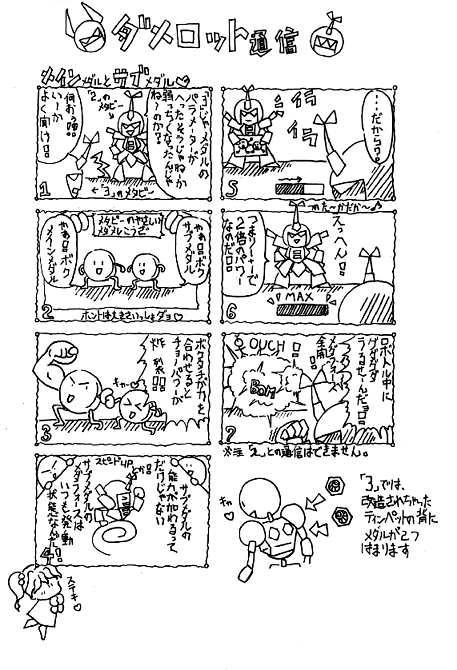 ダメロット通信
メインメダルとサブメダル♡
「3」じゃメダルの
パラメーターが
へったそうじゃねーか
弱っちくなったんじゃ
ねーのか?
「2」のメタビー
何おう!?
いーか
よく聞け!!
←「3」のメタビー
1
メタビーのやさしい
メダルこうざ
やあ!!ボク
サブメダル
やあ!!ボク
メインメダル
ホントはえきさいっしょダヨ♡
2
ボクタチが力を
合わせると
チョーパワーが
炸裂!!
キャー♡
3
スピードUP
サブメダルの
能力が加わるって
だけじゃない
サブメダルの
メダフォースは
いつも発動
状態なんだ!!
4
ステキ♡
…だから!!
イライラ
5
めた〜かだか〜♪
えっへん!!
つまり…
2倍のパワー
なのだ!!
MAX
6
ロボトル中に
グダグダ
うるせーんだヨ!!
メダフォース
全開
OUCH
BOM
7
※注「2」との通信はできません。
キャ♡
「3」では、
改造されちゃった
ティンペットの背に
メダルが2つ
はまります